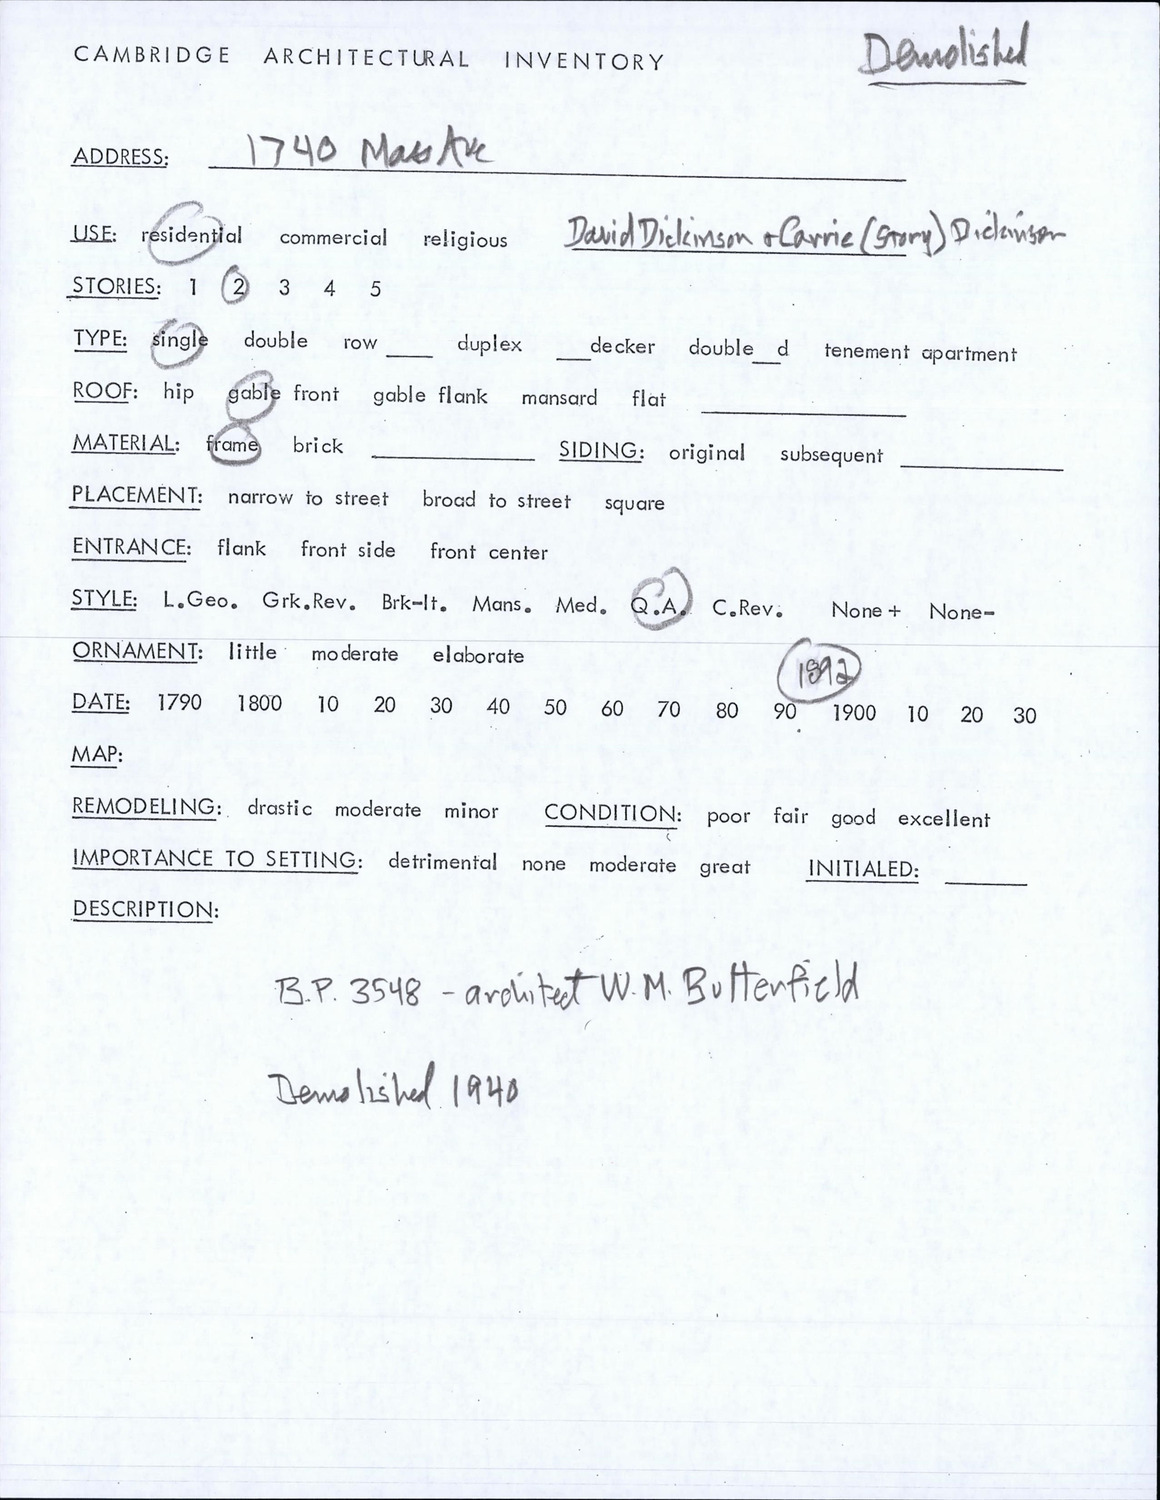 CAMBRIDGE ARCHITECTURAL INVENTORY Demolished
ADDRESS: 1740 Mass Ave
USE: residential commercial religious David Dickinson + Carrie (Story) Dickinson
STORIES: 1 2 3 4 5
TYPE: single double row ____ duplex ___decker double__d tenement apartment
ROOF: hip gable front gable flank mansard flat ____
MATERIAL: frame brick ____ SIDING: original subsequent ____
PLACEMENT: narrow to street broad to street square
ENTRANCE: flank front side front center
STYLE: L.Geo. Grk.Rev. Brk-It. Mans. Med. Q.A. C.Rev. None+ None-
ORNAMENT: little moderate elaborate
1892
DATE: 1790 1800 10 20 30 40 50 60 70 80 90 1900 10 20 30
MAP:
REMODELING: drastic moderate minor CONDITION: poor fair good excellent
IMPORTANCE TO SETTING: detrimental none moderate great INITIALED: ____
DESCRIPTION:
B.P. 3548 - architect W.M. Butterfield
Demolished 1940